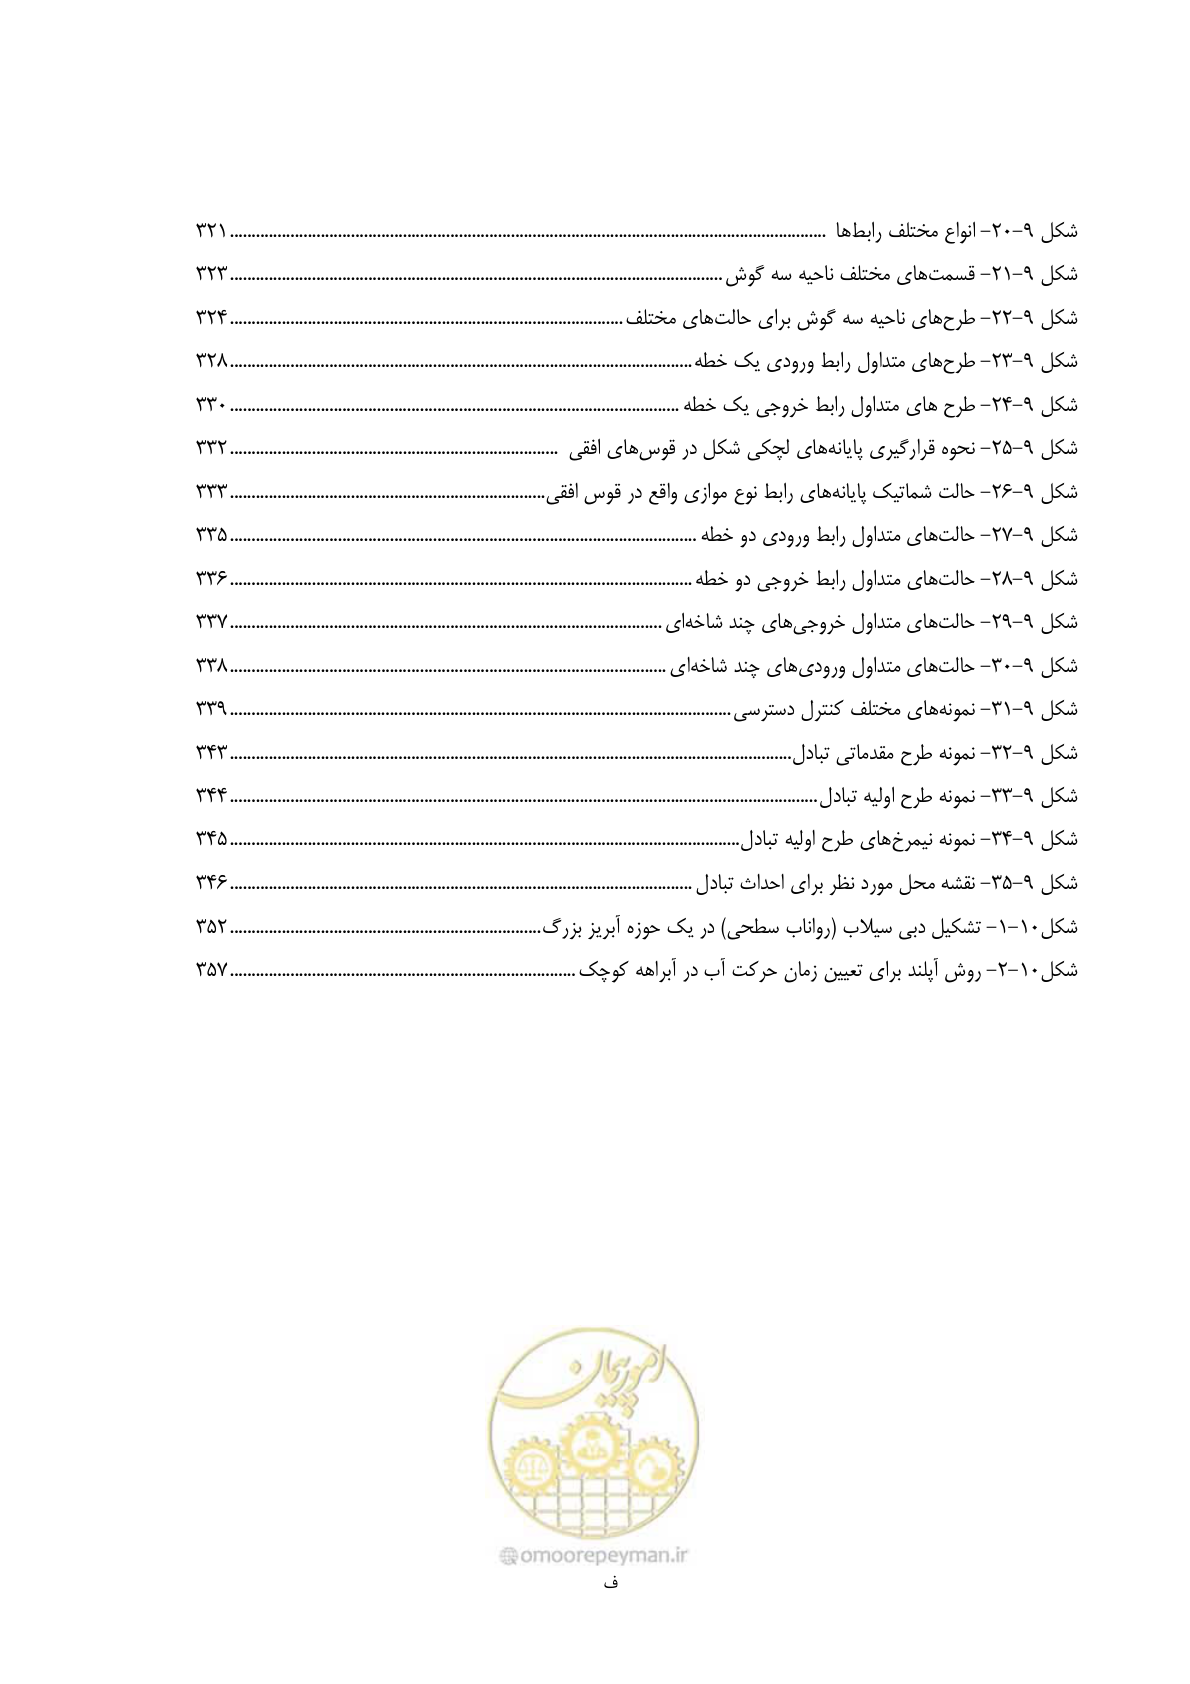 شکل ۹-۲۰- انواع مختلف رابط‌ها ........ ۳۲۱
شکل ۹-۲۱- قسمت‌های مختلف ناحیه سه گوش ........ ۳۲۳
شکل ۹-۲۲- طرح‌های ناحیه سه گوش برای حالت‌های مختلف ........ ۳۲۴
شکل ۹-۲۳- طرح‌های متداول رابط ورودی یک خطه ........ ۳۲۸
شکل ۹-۲۴- طرح های متداول رابط خروجی یک خطه ........ ۳۳۰
شکل ۹-۲۵- نحوه قرارگیری پایانه‌های لچکی شکل در قوس‌های افقی ........ ۳۳۲
شکل ۹-۲۶- حالت شماتیک پایانه‌های رابط نوع موازی واقع در قوس افقی ........ ۳۳۳
شکل ۹-۲۷- حالت‌های متداول رابط ورودی دو خطه ........ ۳۳۵
شکل ۹-۲۸- حالت‌های متداول رابط خروجی دو خطه ........ ۳۳۶
شکل ۹-۲۹- حالت‌های متداول خروجی‌های چند شاخه‌ای ........ ۳۳۷
شکل ۹-۳۰- حالت‌های متداول ورودی‌های چند شاخه‌ای ........ ۳۳۸
شکل ۹-۳۱- نمونه‌های مختلف کنترل دسترسی ........ ۳۳۹
شکل ۹-۳۲- نمونه طرح مقدماتی تبادل ........ ۳۴۳
شکل ۹-۳۳- نمونه طرح اولیه تبادل ........ ۳۴۴
شکل ۹-۳۴- نمونه نیمرخ‌های طرح اولیه تبادل ........ ۳۴۵
شکل ۹-۳۵- نقشه محل مورد نظر برای احداث تبادل ........ ۳۴۶
شکل۱۰-۱- تشکیل دبی سیلاب (رواناب سطحی) در یک حوزه آبریز بزرگ ........ ۳۵۲
شکل۱۰-۲- روش آپلند برای تعیین زمان حرکت آب در آبراهه کوچک ........ ۳۵۷
امور پیمان
@omoorepeyman.ir
ف